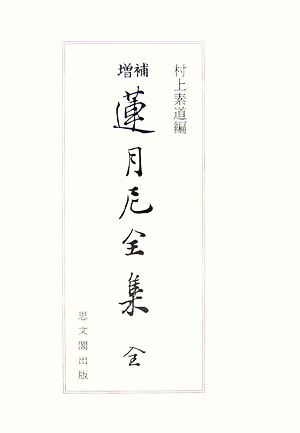 村上素道編
増補
蓮月尼全集 全
思文閣出版